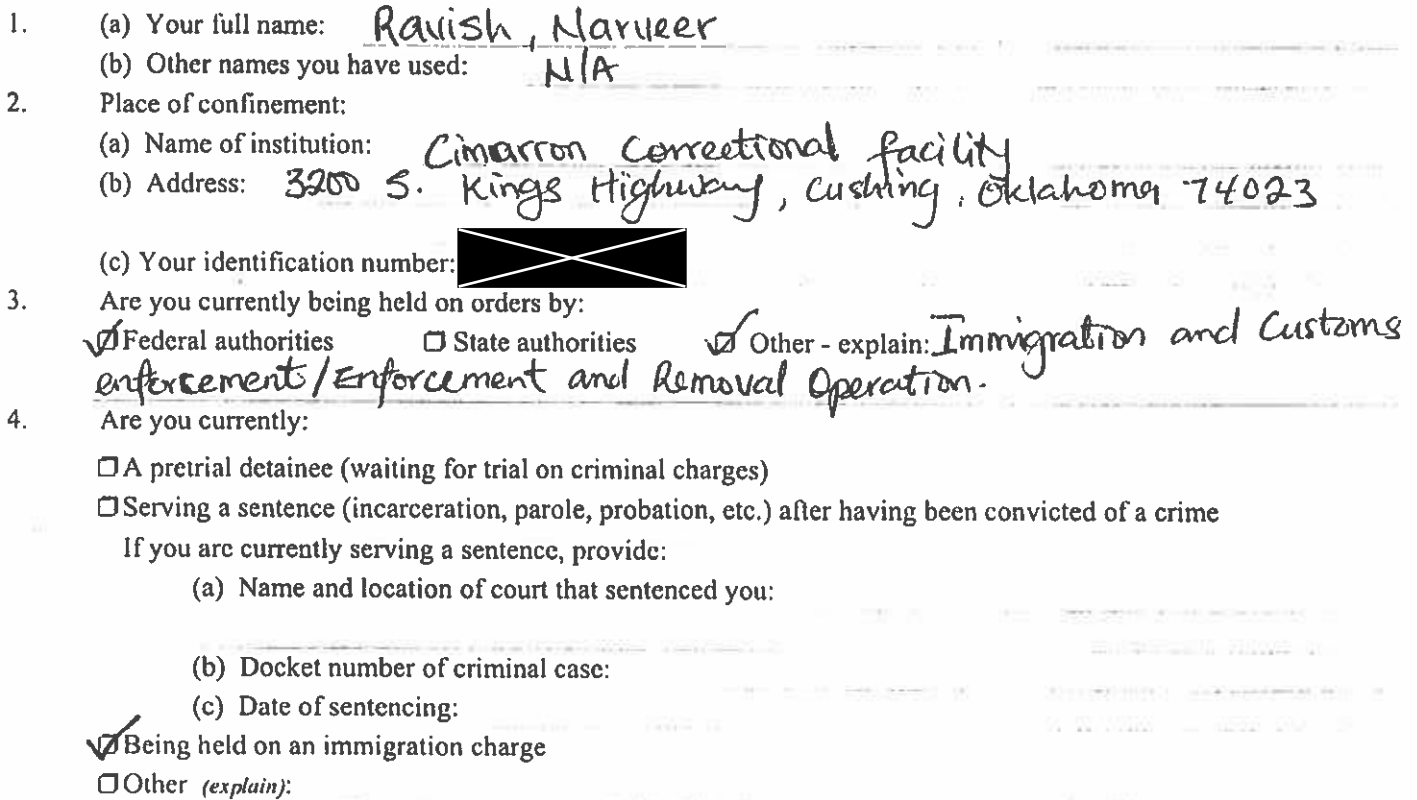 1. (a) Your full name: Ravish, Narveer
(b) Other names you have used: N/A
2. Place of confinement:
(a) Name of institution: Cimarron Correctional facility
(b) Address: 3200 S. Kings Highway, Cushing, Oklahoma 74023
(c) Your identification number:
3. Are you currently being held on orders by:
☑ Federal authorities ☐ State authorities ☑ Other - explain: Immigration and Customs
enforcement/Enforcement and Removal Operation.
4. Are you currently:
☐ A pretrial detainee (waiting for trial on criminal charges)
☐ Serving a sentence (incarceration, parole, probation, etc.) after having been convicted of a crime
If you are currently serving a sentence, provide:
(a) Name and location of court that sentenced you:
(b) Docket number of criminal case:
(c) Date of sentencing:
☑ Being held on an immigration charge
☐ Other (explain):